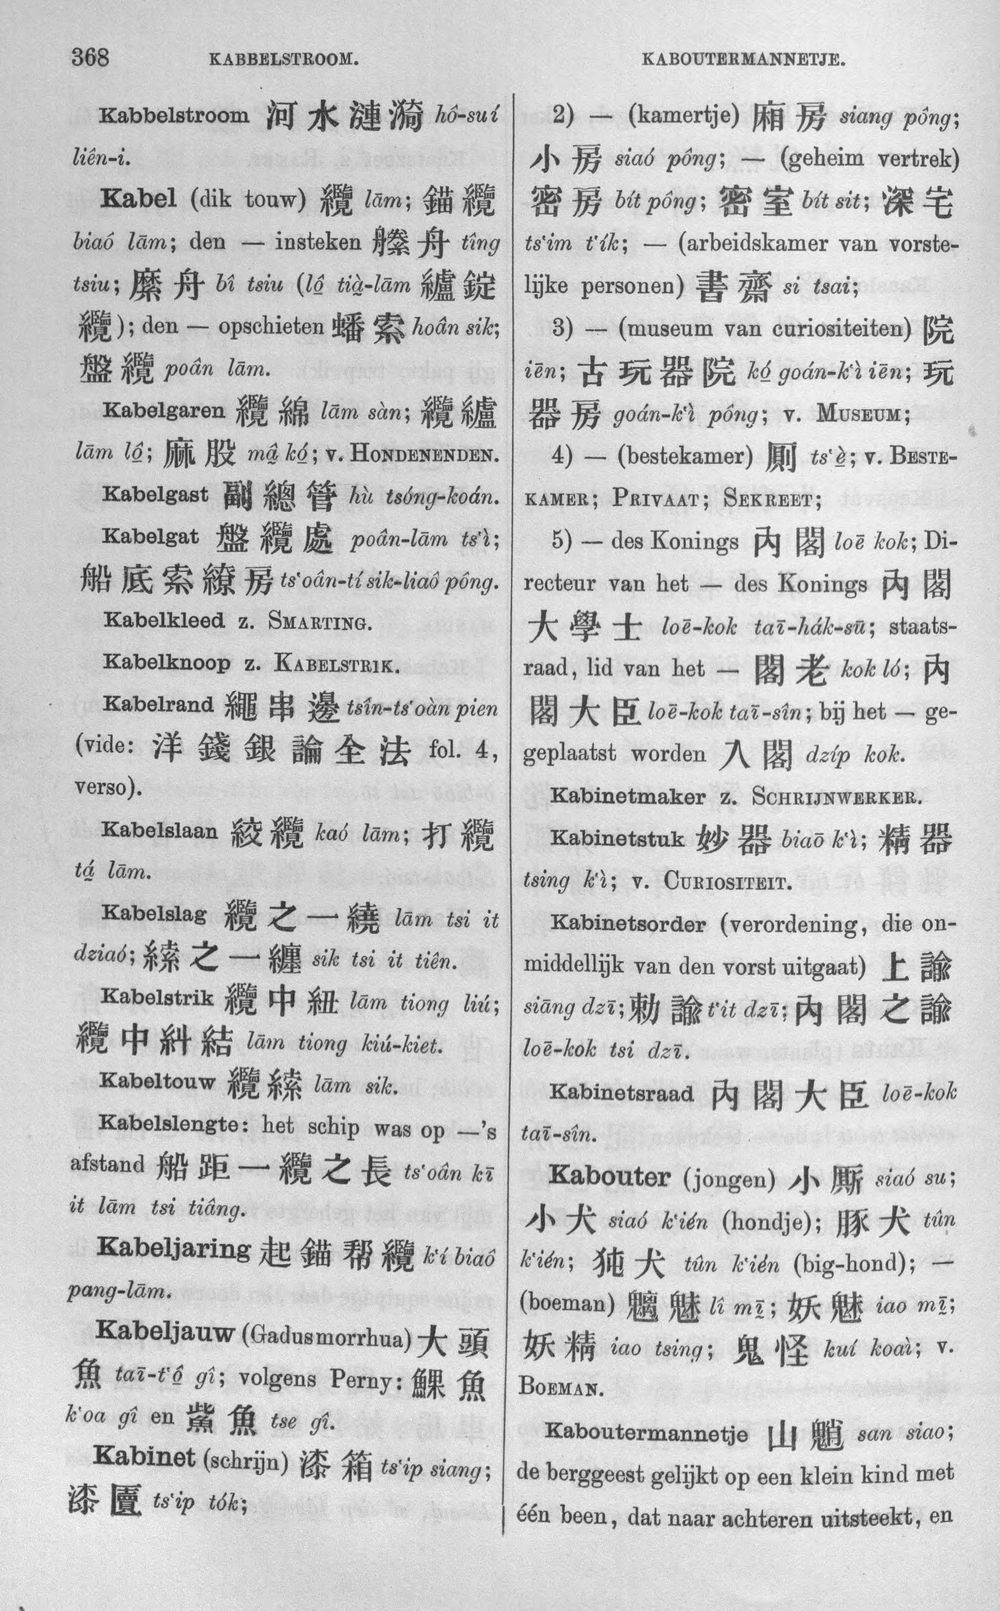 368
KABBELSTROOM.
KABOUTERMANNETJE.
Kabbelstroom 河水漣漪 hô-suí
liên-i.
Kabel (dik touw) 纜 lām; 錨纜
biaó lām; den — insteken 舟 tîng
tsiu; 舟 bî tsiu (lô̤ tià̤-lām 纑錠
纜); den — opschieten 蟠索 hoân sik;
盤纜 poân lām.
Kabelgaren 纜綿 lām sàn; 纜纑
lām lô̤; 麻股 mâ̤ kó̤; v. HONDENENDEN.
Kabelgast 副總管 hù tsóng-koán.
Kabelgat 盤纜處 poân-lām ts‘ì;
船底索繚房 ts‘oân-tí sik-liaô pông.
Kabelkleed z. SMARTING.
Kabelknoop z. KABELSTRIK.
Kabelrand 繩串邊 tsîn-ts‘oàn pien
(vide: 洋錢銀論全法 fol. 4,
verso).
Kabelslaan 絞纜 kaó lām; 打纜
tá̤ lām.
Kabelslag 纜之一繞 lām tsi it
dziaó; 縤之一纏 sik tsi it tiên.
Kabelstrik 纜中紐 lām tiong liú;
纜中糾結 lām tiong kiú-kiet.
Kabeltouw 纜縤 lām sik.
Kabelslengte: het schip was op —’s
afstand 船距一纜之長 ts‘oân kī
it lām tsi tiâng.
Kabeljaring 起錨帮纜 k‘í biaô
pang-lām.
Kabeljauw (Gadus morrhua) 大頭
魚 taī-t‘ô̤ gî; volgens Perny: 鰥魚
k‘oa gî en 鮆魚 tse gî.
Kabinet (schrijn) 漆箱 ts‘ip siang;
漆匵 ts‘ip tók;
2) — (kamertje) 廂房 siang pông;
小房 siaó pông; — (geheim vertrek)
密房 bít pông; 密室 bít sit; 深宅
ts‘im t‘ík; — (arbeidskamer van vorste-
lijke personen) 書齋 si tsai;
3) — (museum van curiositeiten) 院
iēn; 古玩器院 kó̤ goán-k‘ì iēn; 玩
器房 goán-k‘ì pông; v. MUSEUM;
4) — (bestekamer) 厠 ts‘è̤; v. BESTE-
KAMER; PRIVAAT; SEKREET;
5) — des Konings 內閣 loē kok; Di-
recteur van het — des Konings 內閣
大學士 loē-kok taī-hák-sū; staats-
raad, lid van het — 閣老 kok ló; 內
閣大臣 loē-kok taī-sîn; bij het — ge-
geplaatst worden 入閣 dzíp kok.
Kabinetmaker z. SCHRIJNWERKER.
Kabinetstuk 妙器 biaō k‘ì; 精器
tsing k‘ì; v. CURIOSITEIT.
Kabinetsorder (verordening, die on-
middellijk van den vorst uitgaat) 上諭
siāng dzī; 勅諭 t‘it dzī; 內閣之諭
loē-kok tsi dzī.
Kabinetsraad 內閣大臣 loē-kok
taī-sîn.
Kabouter (jongen) 小厮 siaó su;
小犬 siaó k‘ién (hondje); 豚犬 tûn
k‘ién; 㹠犬 tûn k‘ién (big-hond); —
(boeman) 魑魅 lî mī̤; 妖魅 iao mī̤;
妖精 iao tsing; 鬼怪 kuí koaì; v.
BOEMAN.
Kaboutermannetje 山魈 san siao;
de berggeest gelijkt op een klein kind met
één been, dat naar achteren uitsteekt, en